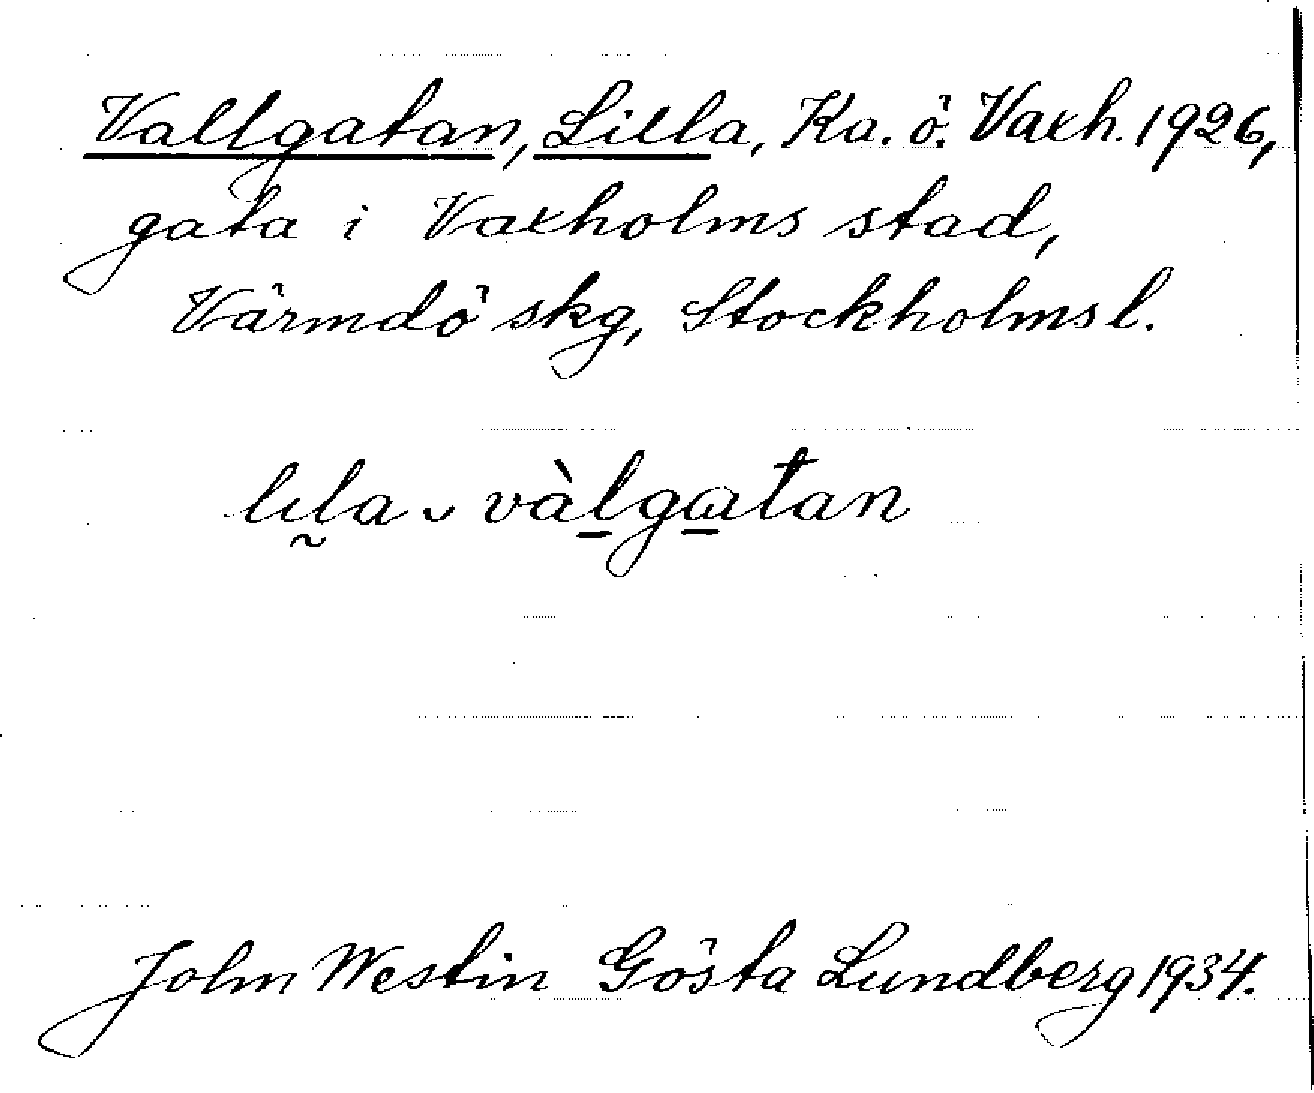 Vallgatan, Lilla, Ka. ö. Vaxh. 1926,
gata i Vaxholms stad,
Värmdö skg, Stockholms l.
lıla ᴗ vàlgɷtan
John Westin Gösta Lundberg 1934.